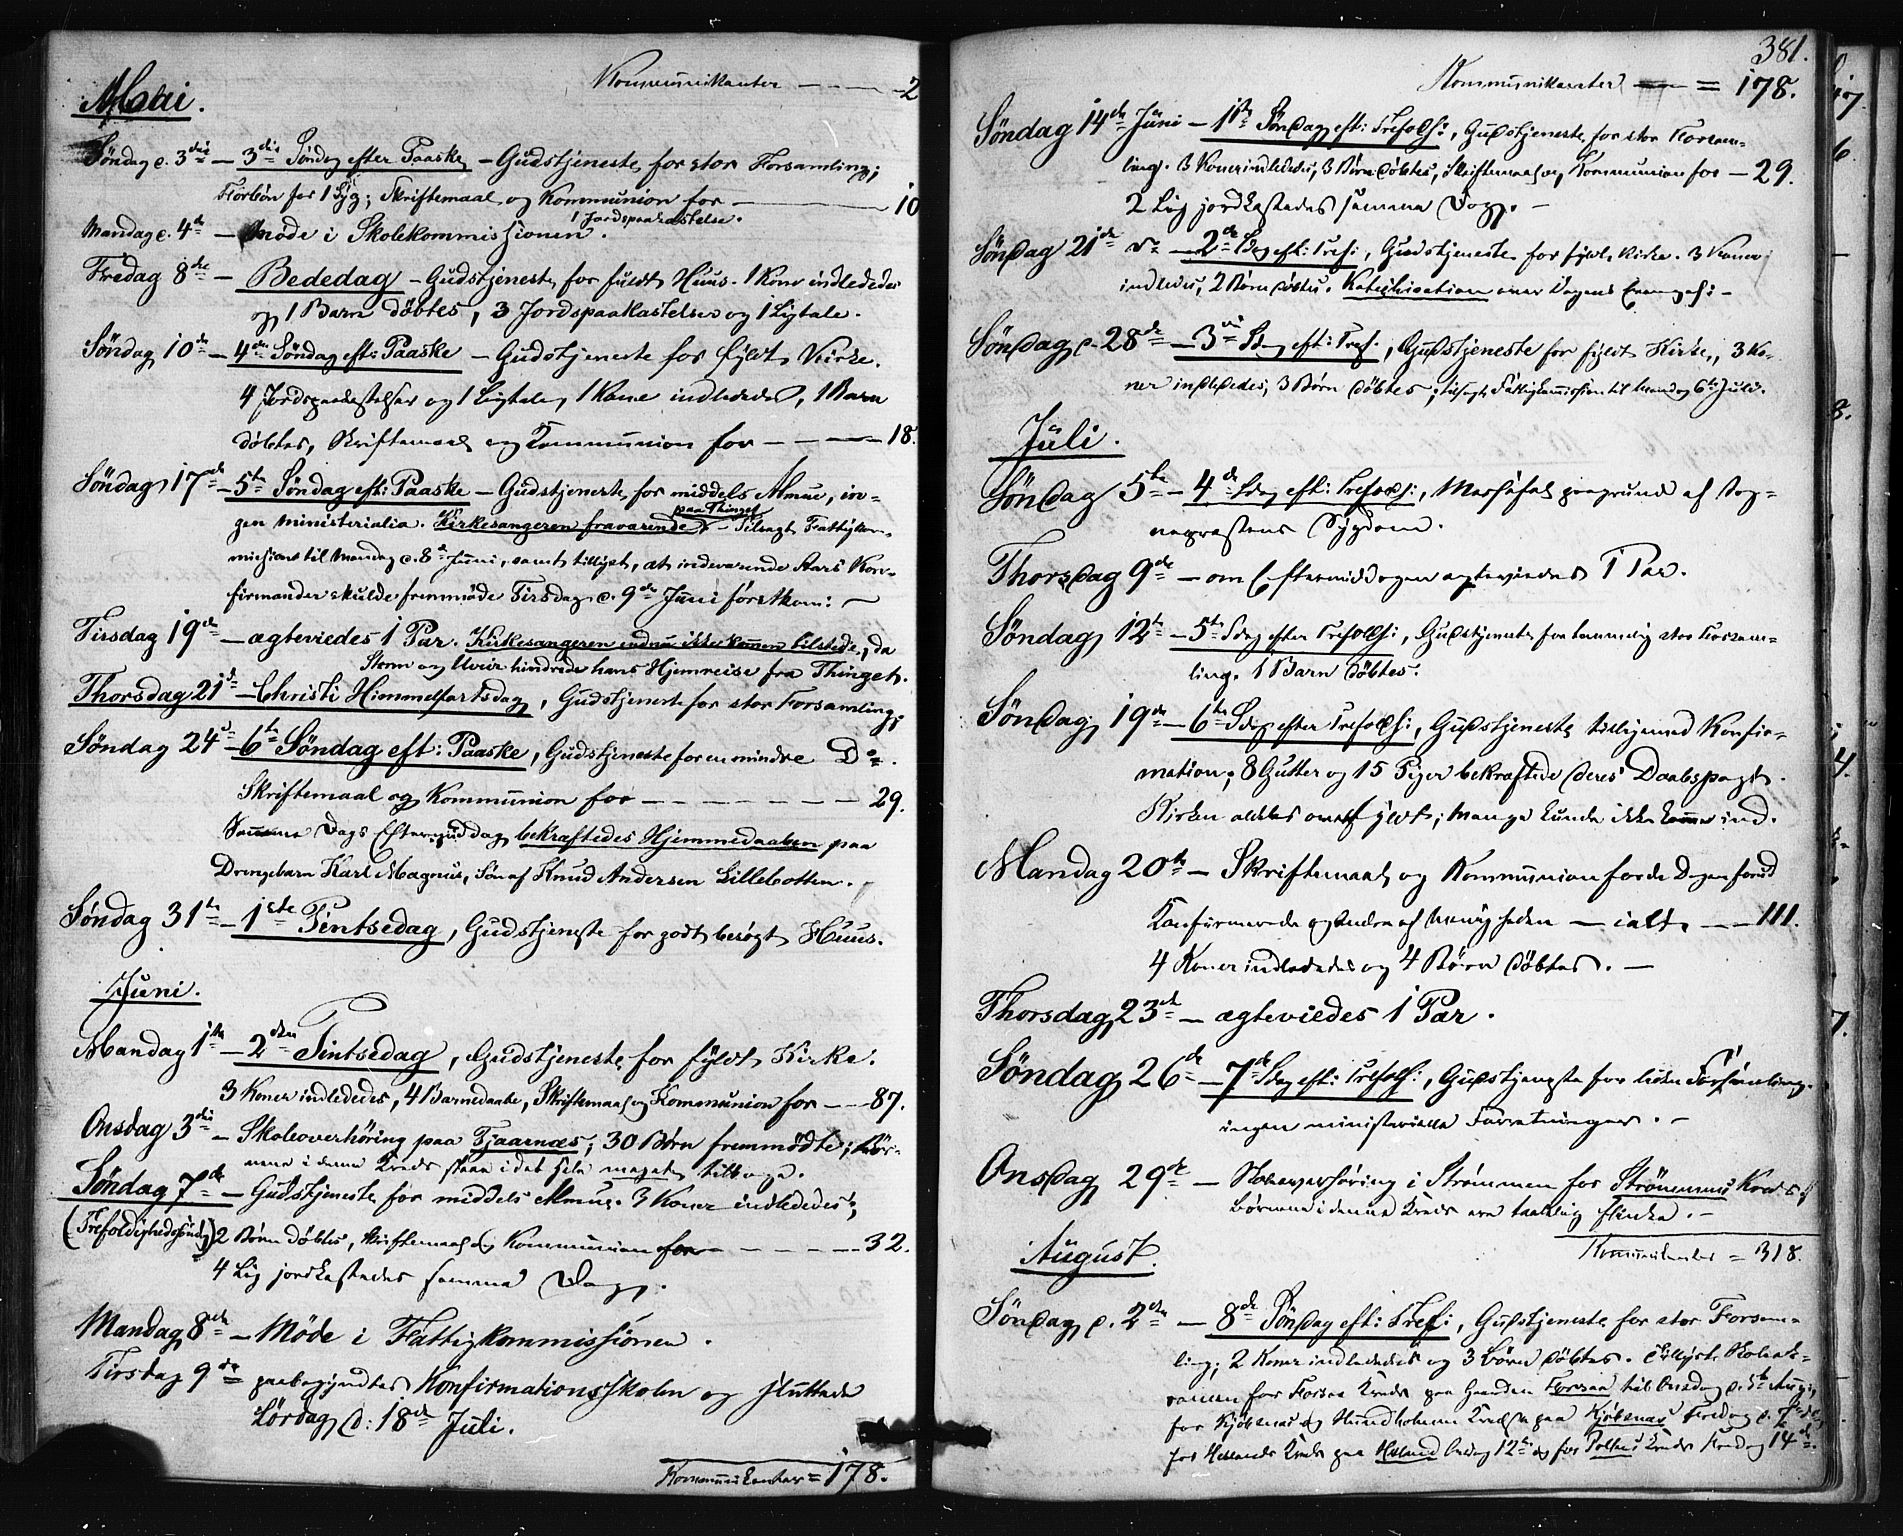 Mai.
Kommunikanter - - - - 2
Søndag d. 3die - 3die Søndag efter Paaske, - Gudstjeneste for stor Forsamling;
Forbøn for 1 Syg; Skriftemaal og Kommunion for - 10
1 Jordspaakastelse.
Mandag d. 4de - Møde i Skolekommissionen.
Fredag 8de - Bededag - Gudstjeneste for fuldt Huus. 1 Kone indlededes
og 1 Barn døbtes, 3 Jordspaakastelser og 1 Ligtale.
Søndag 10de - 4de Søndag eft: Paaske - Gudstjeneste for fyldt Kirke.
4 Jordspaakastelser og 1 Ligtale, 1 Kone indlededes, 1 Barn
døbtes, Skriftemaal og Kommunion for - - - - 18.
Søndag 17de - 5te Søndag eft: Paaske - Gudstjeneste for middels Almue, in-
paa Thinget
gen ministerialia. Kirkesangeren fraværende - Tilsagt Fattigkom-
mission til Mandag d. 8de Juni, samt tillyst, at indeværende Aars Kon-
firmander skulde fremmøde Tirsdag d. 9de Juni førstkom: -
Tirsdag 19de - ægteviedes 1 Par. Kirkesangeren endnu ikke kommen tilstede, da
Storm og Uveir hindrede hans Hjemreise fra Thinget.
Thorsdag 21de - Christi Himmelfartsdag, Gudstjeneste for stor Forsamling.
Søndag 24de - 6te Søndag eft: Paaske, Gudstjeneste for en mindre Do.
Skriftemaal og Kommunion for - - - - - - 29.
Samme Dags Eftermiddag bekræftedes Hjemmedaaben paa
Drengebarn Karl Magnus, Søn af Knud Andersen Lillebotten.
Søndag 31te - 1ste Pintsedag, Gudstjeneste for godt besøgt Huus.
Juni.
Mandag 1ste - 2den Pintsedag, Gudstjeneste for fyldt Kirke.
3 Koner indlededes, 4 Barnedaabe, Skriftemaal og Kommunion for - - 87.
Onsdag 3die - Skoleoverhøring paa Tjaarnæs; 30 Børn fremmødte; Bør-
nene i denne Kreds staae i det hele meget tilbage.
Søndag 7de - Gudstjeneste for middels Almue. 3 Koner indlededes,
(Trefoldighedssøndag) 2 Børn døbtes, Skriftemaal og Kommunion for - - - - - 32.
4 Lig jordkastedes samme Dag.
Mandag 8de - Møde i Fattigkommissionen.
Tirsdag 9de paabegyndtes Konfirmationsskolen og sluttede
Lørdag d: 18de Juli.
Kommunikanter = 178.
381.
Kommunikanter = 178.
Søndag 14de Juni - 1ste Søndag eft: Trefoldh:, Gudstjeneste for stor Forsam-
ling. 3 Koner indlededes, 3 Børn døbtes, Skriftemaal og Kommunion for - 29.
2 Lig jordkastedes samme Dag. -
Søndag 21de do - 2den Sdag eft: Tref:, Gudstjeneste for fyldt Kirke. 3 Koner
indledes, 2 Børn døbtes. Katechisation over Dagens Evangel: -
Søndag d. 28de - 3die Sdag eft: Tref., Gudstjeneste for fyldt Kirke, 3 Ko-
ner indlededes, 3 Børn døbtes; tilsagt Fattigkommission til Mandag 6te Juli.
Juli.
Søndag 5te - 4de Sdag eft: Trefoldh:, Messefald paagrund af Sog-
nepræstens Sygdom.
Thorsdag 9de - om Eftermiddagen ægteviedes 1 Par.
Søndag 12te - 5te Sdag efter Trefoldh:, Gudstjeneste for temmelig stor Forsam-
ling. 1 Barn døbtes.
Søndag 19de - 6te Sdag efter Trefoldh:, Gudstjeneste tilligemed Konfir-
mation; 8 Gutter og 15 Piger bekræftede deres Daabspagt.
Kirken aldeles overfyldt; mange kunde ikke komme ind.
Mandag 20de - Skriftemaal og Kommunion for de Dagen forud
Konfirmerede og Andre af Menigheden - ialt - - 111.
4 Koner indlededes og 4 Børn døbtes. -
Thorsdag 23de - ægteviedes 1 Par.
Søndag 26de - 7de Sdag eft: Trefoldh:, Gudstjeneste for liden Forsamling.
ingen ministerielle Forretninger. -
Onsdag 29de - Skoleoverhøring i Strømmen for Strømmens Kreds;
Børnene i denne Kreds ere taalelig flinke. -
Kommunikanter = 318.
August.
Søndag d. 2den - 8de Søndag eft: Tref:, Gudstjeneste for stor Forsam-
ling; 2 Koner indlededes og 3 Børn døbtes. Tillyst Skoleex-
amen for Forsaa Kreds paa Gaarden Forsaa til Onsdag d. 5te Aug:,
for Kjøbsnæs og Hundholmen Kredse paa Kjøbsnæs Fredag d. 7de,
for Hellands Kreds paa Helland Onsdag 12te og for Kreds Fredag 14de.